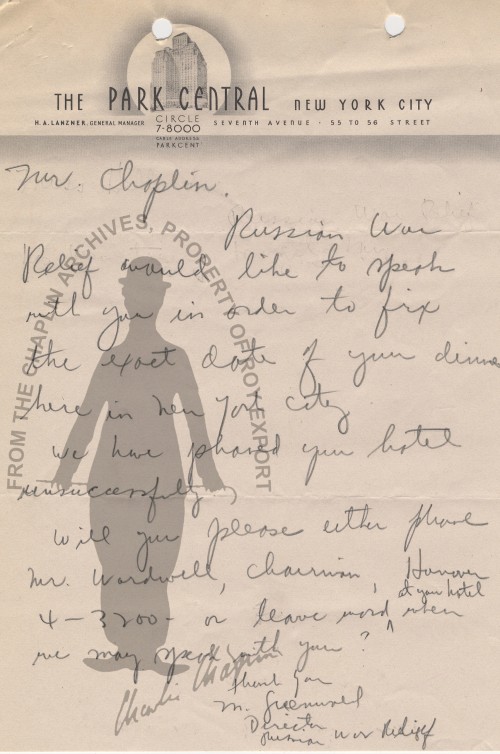 THE PARK CENTRAL NEW YORK CITY
H. A. LANZNER, GENERAL MANAGER
CIRCLE
7-8000
SEVENTH AVENUE · 55 TO 56 STREET
CABLE ADDRESS
PARKCENT
Mr. Chaplin.
Russian War
Relief would like to speak
with you in order to fix
the exact date of your dinner
here in New York City
We have phoned your hotel
unsuccessfully
Will you please either phone
Mr. Wardwell, Chairman, Hanover
4-3200- or leave word at your hotel when
we may speak with you?
Thank you
M. Greenwald
Director
Russian War Relief
FROM THE CHAPLIN ARCHIVES, PROPERTY OF ROY EXPORT
Charlie Chaplin